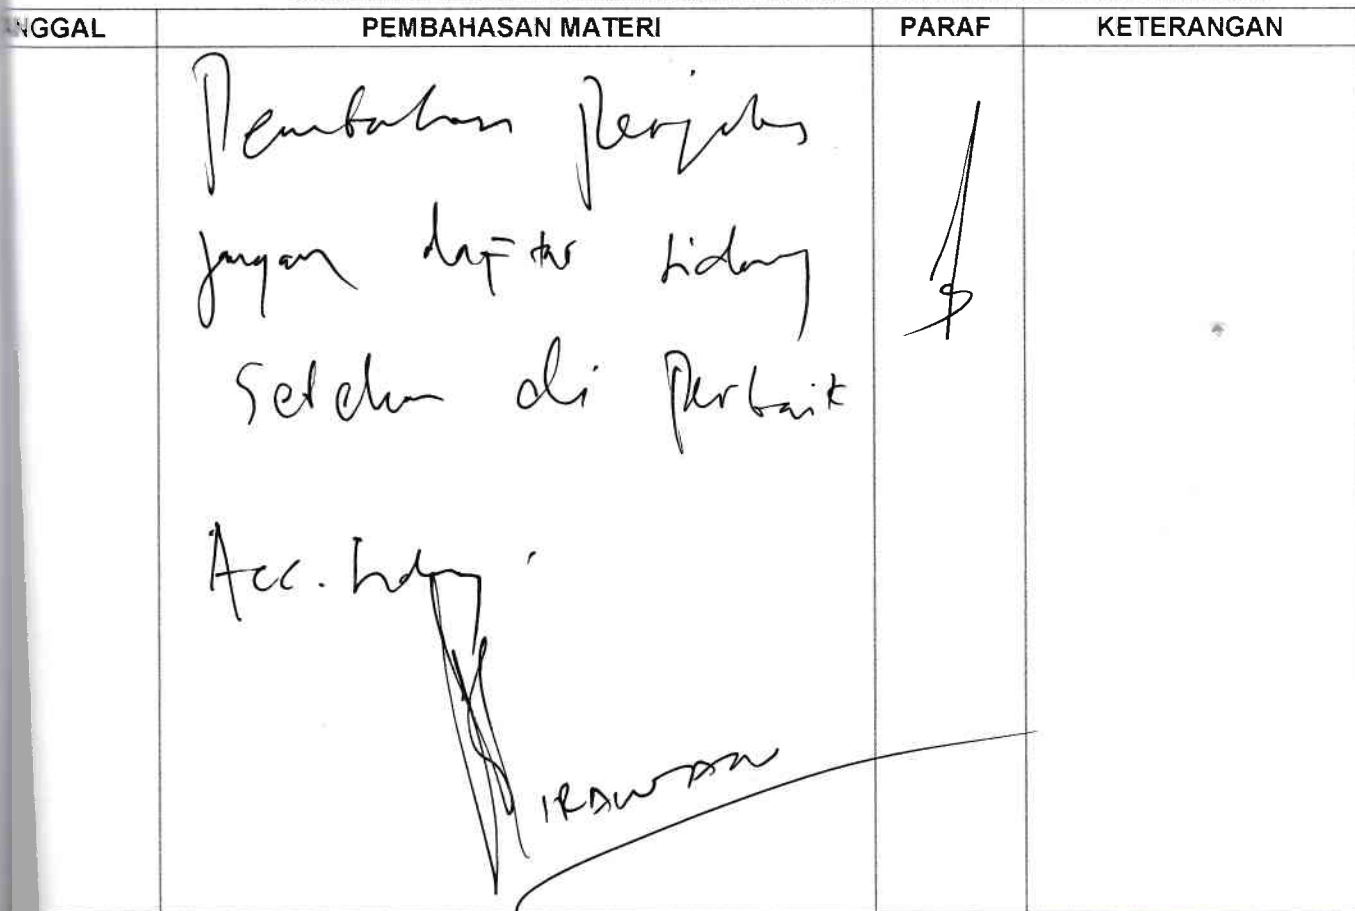 NGGAL PEMBAHASAN MATERI PARAF KETERANGAN
Pembahasan Perjelas
jangan daftar sidang
sebelum di Perbaik
Acc. Sidang
IRAWAN